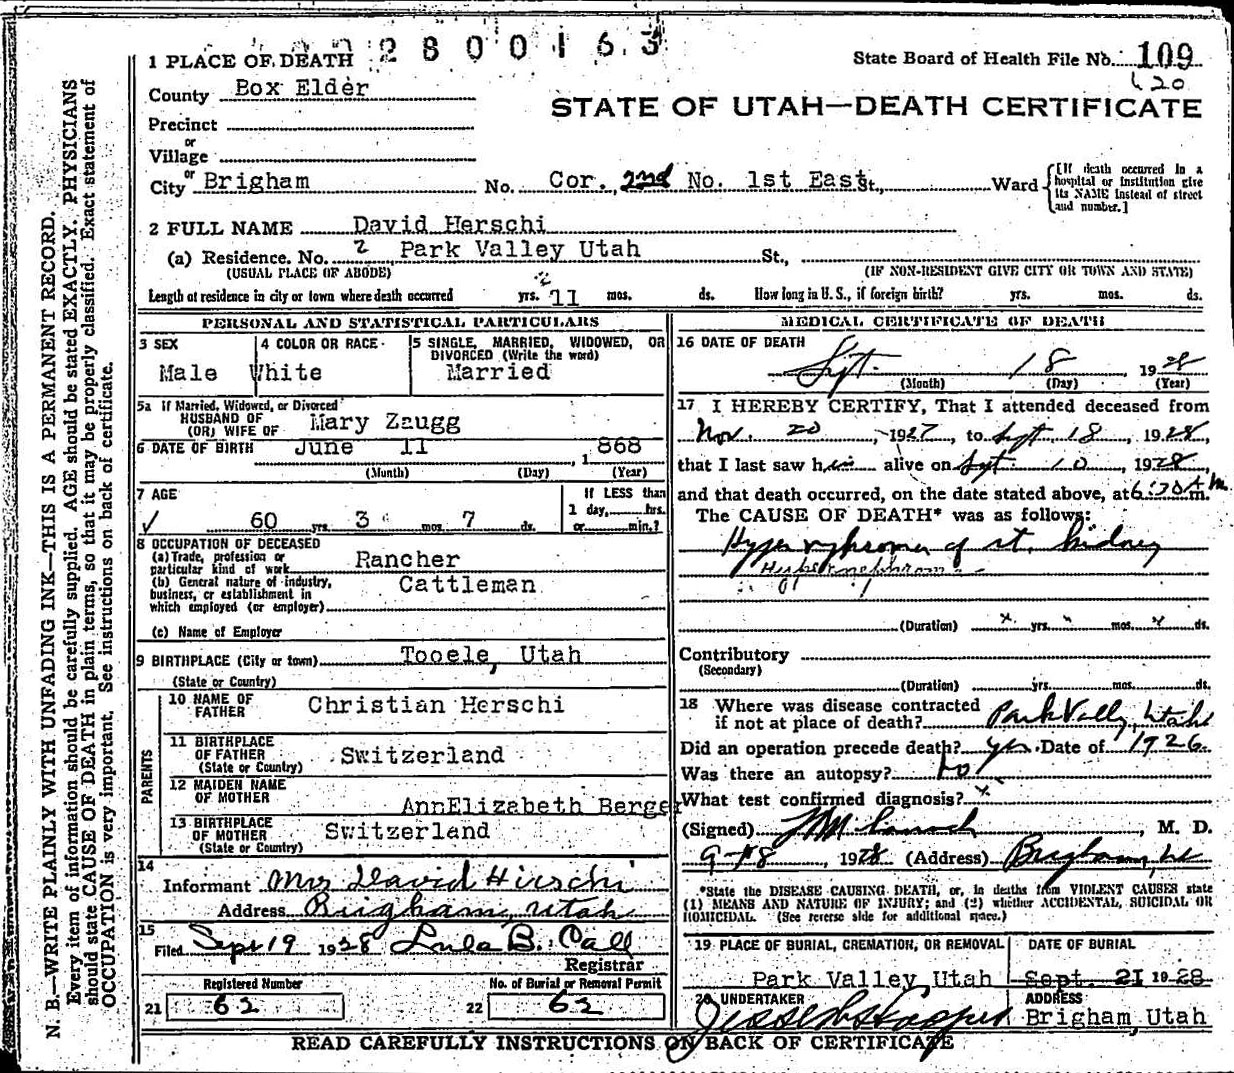 2800163
State Board of Health File No. 109
620
1 PLACE OF DEATH
County Box Elder
STATE OF UTAH—DEATH CERTIFICATE
Precinct
or
Village
or
City Brigham No. Cor. 2nd No. 1st East St., Ward
[If death occurred in a hospital or institution give its NAME instead of street and number.]
2 FULL NAME David Herschi
(a) Residence. No. 2 Park Valley Utah St.,
(USUAL PLACE OF ABODE) (IF NON-RESIDENT GIVE CITY OR TOWN AND STATE)
Length of residence in city or town where death occurred yrs. 11 mos. ds. How long in U. S., if foreign birth? yrs. mos. ds.
PERSONAL AND STATISTICAL PARTICULARS
3 SEX 4 COLOR OR RACE 5 SINGLE, MARRIED, WIDOWED, OR DIVORCED (Write the word)
Male White Married
5a If Married, Widowed, or Divorced
HUSBAND OF
(OR) WIFE OF Mary Zaugg
6 DATE OF BIRTH June 11, 1868
(Month) (Day) (Year)
7 AGE If LESS than
1 day, hrs.
60 yrs. 3 mos. 7 ds. or min.?
8 OCCUPATION OF DECEASED
(a) Trade, profession or
particular kind of work Rancher
(b) General nature of industry,
business, or establishment in
which employed (or employer) Cattleman
(c) Name of Employer
9 BIRTHPLACE (City or town) Tooele, Utah
(State or Country)
PARENTS
10 NAME OF
FATHER Christian Herschi
11 BIRTHPLACE
OF FATHER Switzerland
(State or Country)
12 MAIDEN NAME
OF MOTHER AnnElizabeth Berger
13 BIRTHPLACE
OF MOTHER Switzerland
(State or Country)
14
Informant Mrs David Hirschi
Address Brigham, Utah
15
Filed Sept 19 1928 Lula B. Call
Registrar
Registered Number No. of Burial or Removal Permit
21 62 22 62
MEDICAL CERTIFICATE OF DEATH
16 DATE OF DEATH
Sept. 18 1928
(Month) (Day) (Year)
17 I HEREBY CERTIFY, That I attended deceased from
Nov. 20, 1927, to Sept 18, 1928,
that I last saw him alive on Sept. 10, 1928,
and that death occurred, on the date stated above, at 6:30 A m.
The CAUSE OF DEATH* was as follows:
Hypernephroma of rt. kidney
Hypernephroma
(Duration) yrs. mos. ds.
Contributory
(Secondary)
(Duration) yrs. mos. ds.
18 Where was disease contracted
if not at place of death? Park Valley, Utah
Did an operation precede death? yes. Date of 1926.
Was there an autopsy? no
What test confirmed diagnosis? x
(Signed) M. D.
9-18, 1928 (Address) Brigham, Ut
*State the DISEASE CAUSING DEATH, or, in deaths from VIOLENT CAUSES state
(1) MEANS AND NATURE OF INJURY; and (2) whether ACCIDENTAL, SUICIDAL OR
HOMICIDAL. (See reverse side for additional space.)
19 PLACE OF BURIAL, CREMATION, OR REMOVAL DATE OF BURIAL
Park Valley, Utah Sept. 21 1928
20 UNDERTAKER ADDRESS
Brigham, Utah
READ CAREFULLY INSTRUCTIONS ON BACK OF CERTIFICATE
N. B.—WRITE PLAINLY WITH UNFADING INK—THIS IS A PERMANENT RECORD.
Every item of information should be carefully supplied. AGE should be stated EXACTLY. PHYSICIANS
should state CAUSE OF DEATH in plain terms, so that it may be properly classified. Exact statement of
OCCUPATION is very important. See instructions on back of certificate.